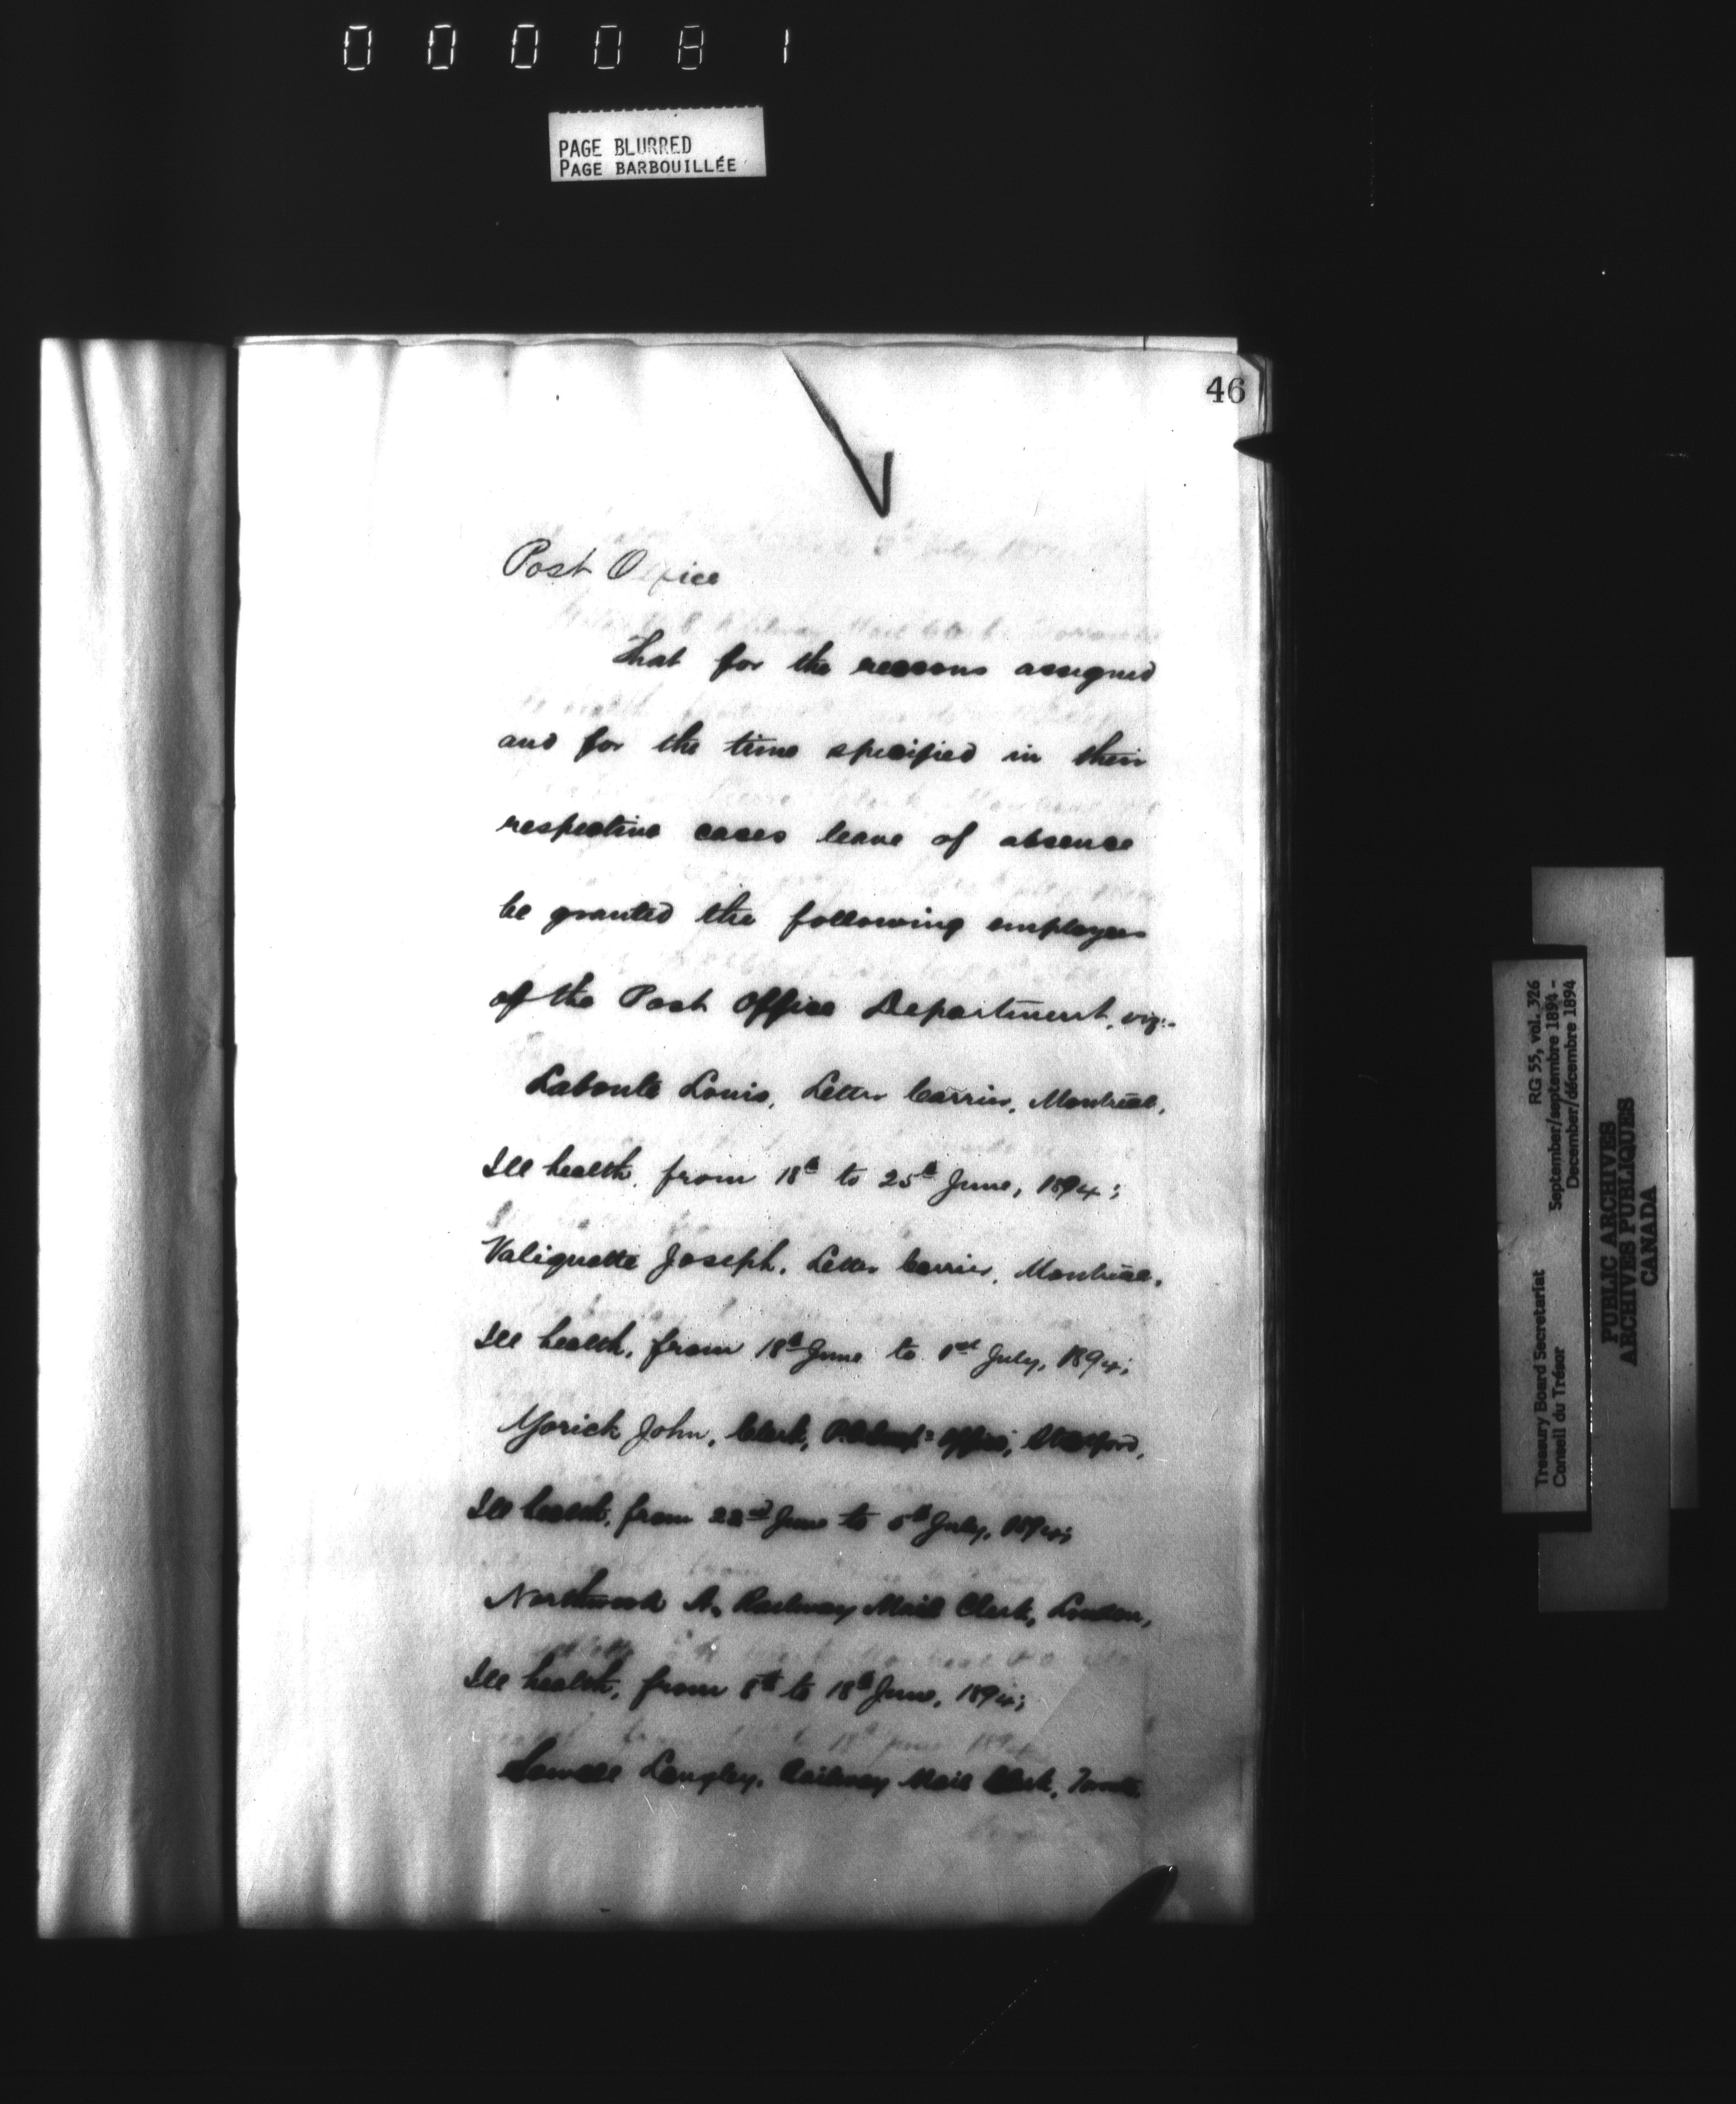 000081
PAGE BLURRED
PAGE BARBOUILLÉE
46
Post Office
That for the reasons assigned
and for the time specified in their
respective cases leave of absence
be granted the following employees
of the Post Office Department, viz:-
Labonté Louis, Letter Carrier, Montreal,
Ill health, from 18th to 25th June, 1894;
Valiquette Joseph, Letter Carrier, Montreal,
Ill health, from 18th June to 1st July, 1894;
Yorick John, Clerk, Office,
Ill health, from 22nd June to 5th July, 1894;
Northwood A., Railway Mail Clerk, London,
Ill health, from 8th to 18th June, 1894;
Langley, Railway Mail Clerk, Toronto,
Treasury Board Secretariat RG 55, vol. 326
Conseil du Trésor September/septembre 1894 -
December/décembre 1894
PUBLIC ARCHIVES
ARCHIVES PUBLIQUES
CANADA